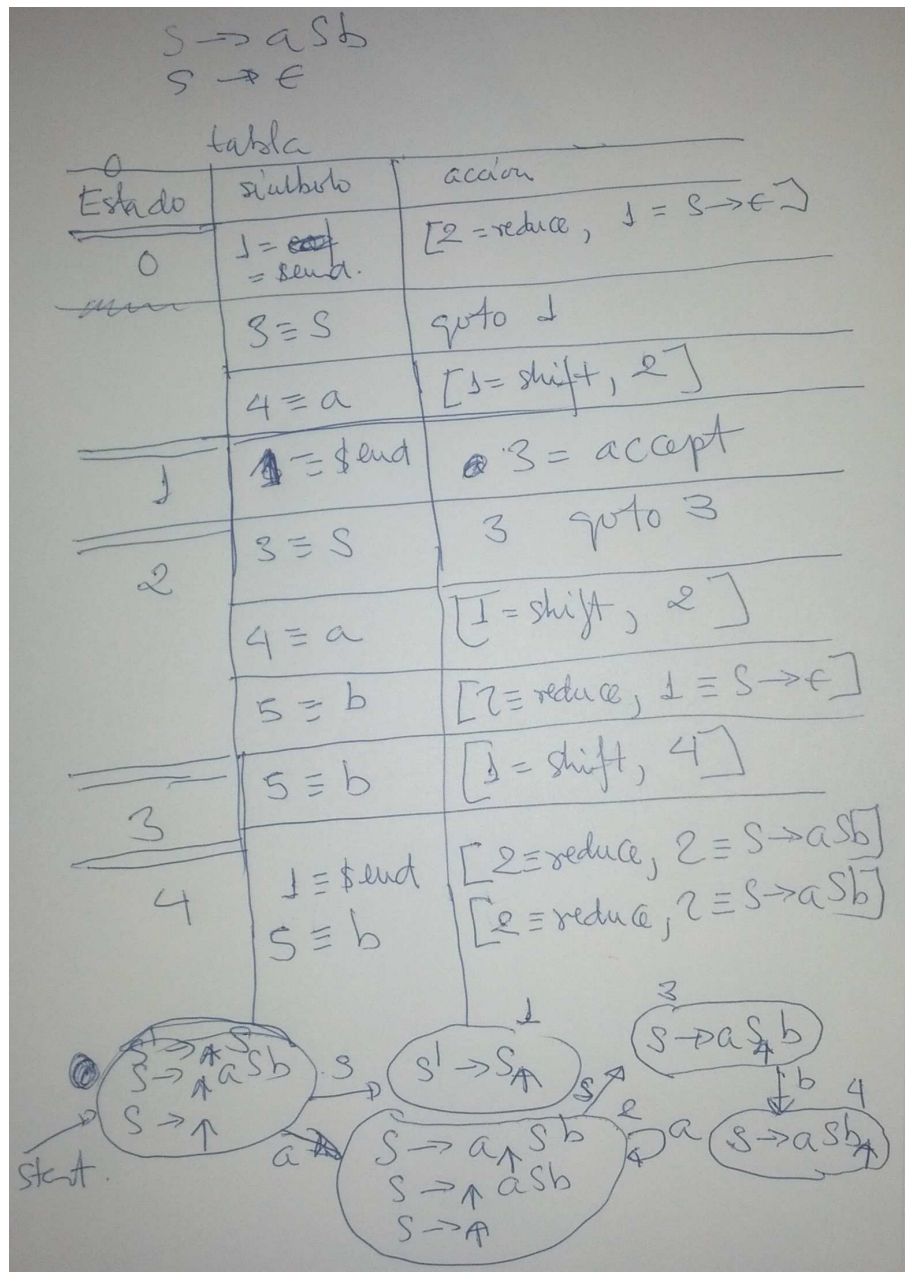 S → aSb
S → ϵ
tabla
Estado símbolo acción
0 1 = = $end. [2 = reduce, 1 = S → ϵ]
3 ≡ S goto 1
4 ≡ a [1 = shift, 2]
1 1 ≡ $end 3 = accept
2 3 ≡ S 3 goto 3
4 ≡ a [1 = shift, 2]
5 ≡ b [2 ≡ reduce, 1 ≡ S → ϵ]
3 5 ≡ b [1 = shift, 4]
4 1 ≡ $end [2 ≡ reduce, 2 ≡ S → aSb]
5 ≡ b [2 ≡ reduce, 2 ≡ S → aSb]
S' → ↑S
S → ↑aSb
S → ↑
start.
S
a
1
S' → S↑
S
2
S → a↑Sb
S → ↑aSb
S → ↑
a
3
S → aS↑b
b
4
S → aSb↑